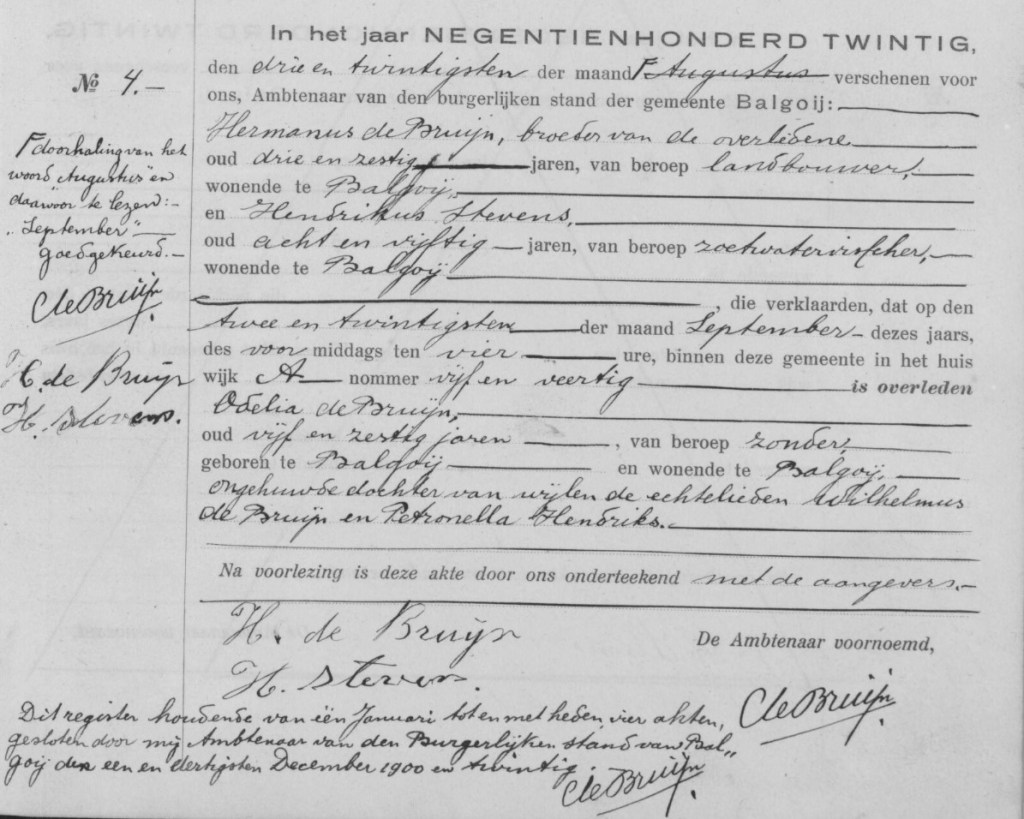 In het jaar NEGENTIENHONDERD TWINTIG,
No 4.-
den drie en twintigsten der maand Augustus verschenen voor
ons, Ambtenaar van den burgerlijken stand der gemeente Balgoij:
Hermanus de Bruijn, broeder van de overledene
oud drie en zestig jaren, van beroep landbouwer,
wonende te Balgoij,
en Hendrikus Stevens,
oud acht en vijftig jaren, van beroep zoetwatervisscher,
wonende te Balgoij
, die verklaarden, dat op den
twee en twintigsten der maand September dezes jaars,
des voor middags ten vier ure, binnen deze gemeente in het huis
wijk A nommer vijf en veertig is overleden
Odelia de Bruijn,
oud vijf en zestig jaren , van beroep zonder,
geboren te Balgoij en wonende te Balgoij,
ongehuwde dochter van wijlen de echtelieden Wilhelmus
de Bruijn en Petronella Hendriks.
Na voorlezing is deze akte door ons onderteekend met de aangevers.
doorhaling van het
woord "Augustus" en
daarvoor te lezen:
"September"
goedgekeurd.
CdeBruijn
H. de Bruijn
H. Stevens.
H. de Bruijn
H. Stevens.
De Ambtenaar voornoemd,
CdeBruijn
Dit register houdende van één Januari tot en met heden vier akten,
gesloten door mij Ambtenaar van den Burgerlijken stand van Bal„
goij den een en dertigsten December 1900 en twintig.
CdeBruijn